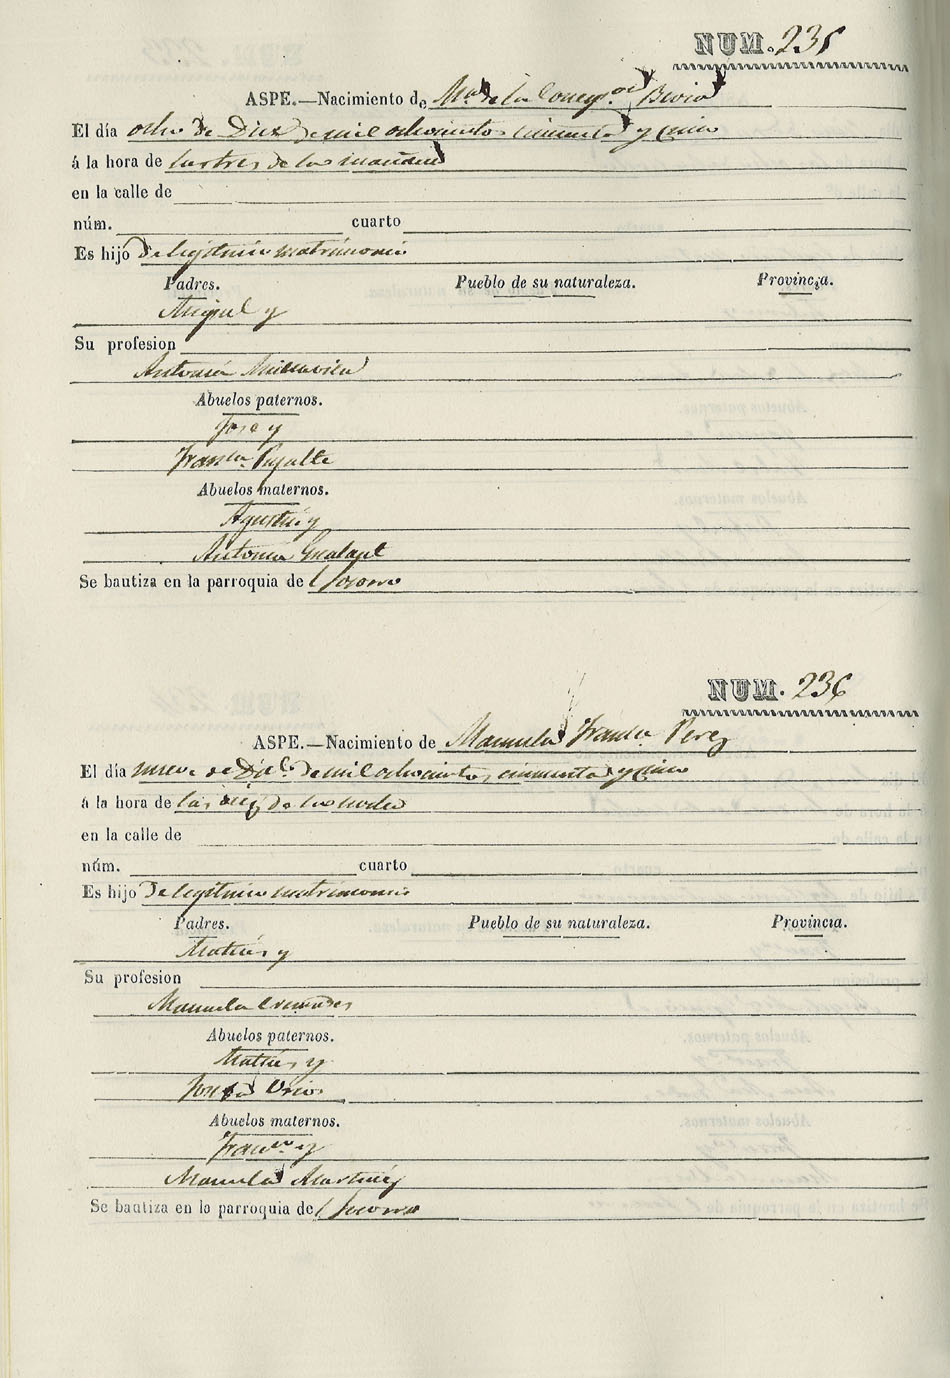 NUM. 235
ASPE.—Nacimiento de Ma. de la Concepon. Brivia
El día ocho de Dize. de mil ochocientos cincuenta y cinco
á la hora de las tres de la mañana
en la calle de
núm. cuarto
Es hijo de legitimo matrimonio
Padres. Pueblo de su naturaleza. Provincia.
Miguel y
Su profesion
Antonia
Abuelos paternos.
Jose y
Franca. Pujalte
Abuelos maternos.
Agustin y
Antonia Galant
Se bautiza en la parroquia de l Socorro
NUM. 236
ASPE.—Nacimiento de Manuela Franca. Perez
El día nueve de Dice. de mil ochocientos cincuenta y cinco
á la hora de las diez de la noche
en la calle de
núm. cuarto
Es hijo de legitimo matrimonio
Padres. Pueblo de su naturaleza. Provincia.
Matias y
Su profesion
Manuela Cremades
Abuelos paternos.
Matias y
Josefa
Abuelos maternos.
Franco. y
Manuela Martinez
Se bautiza en la parroquia de l Socorro